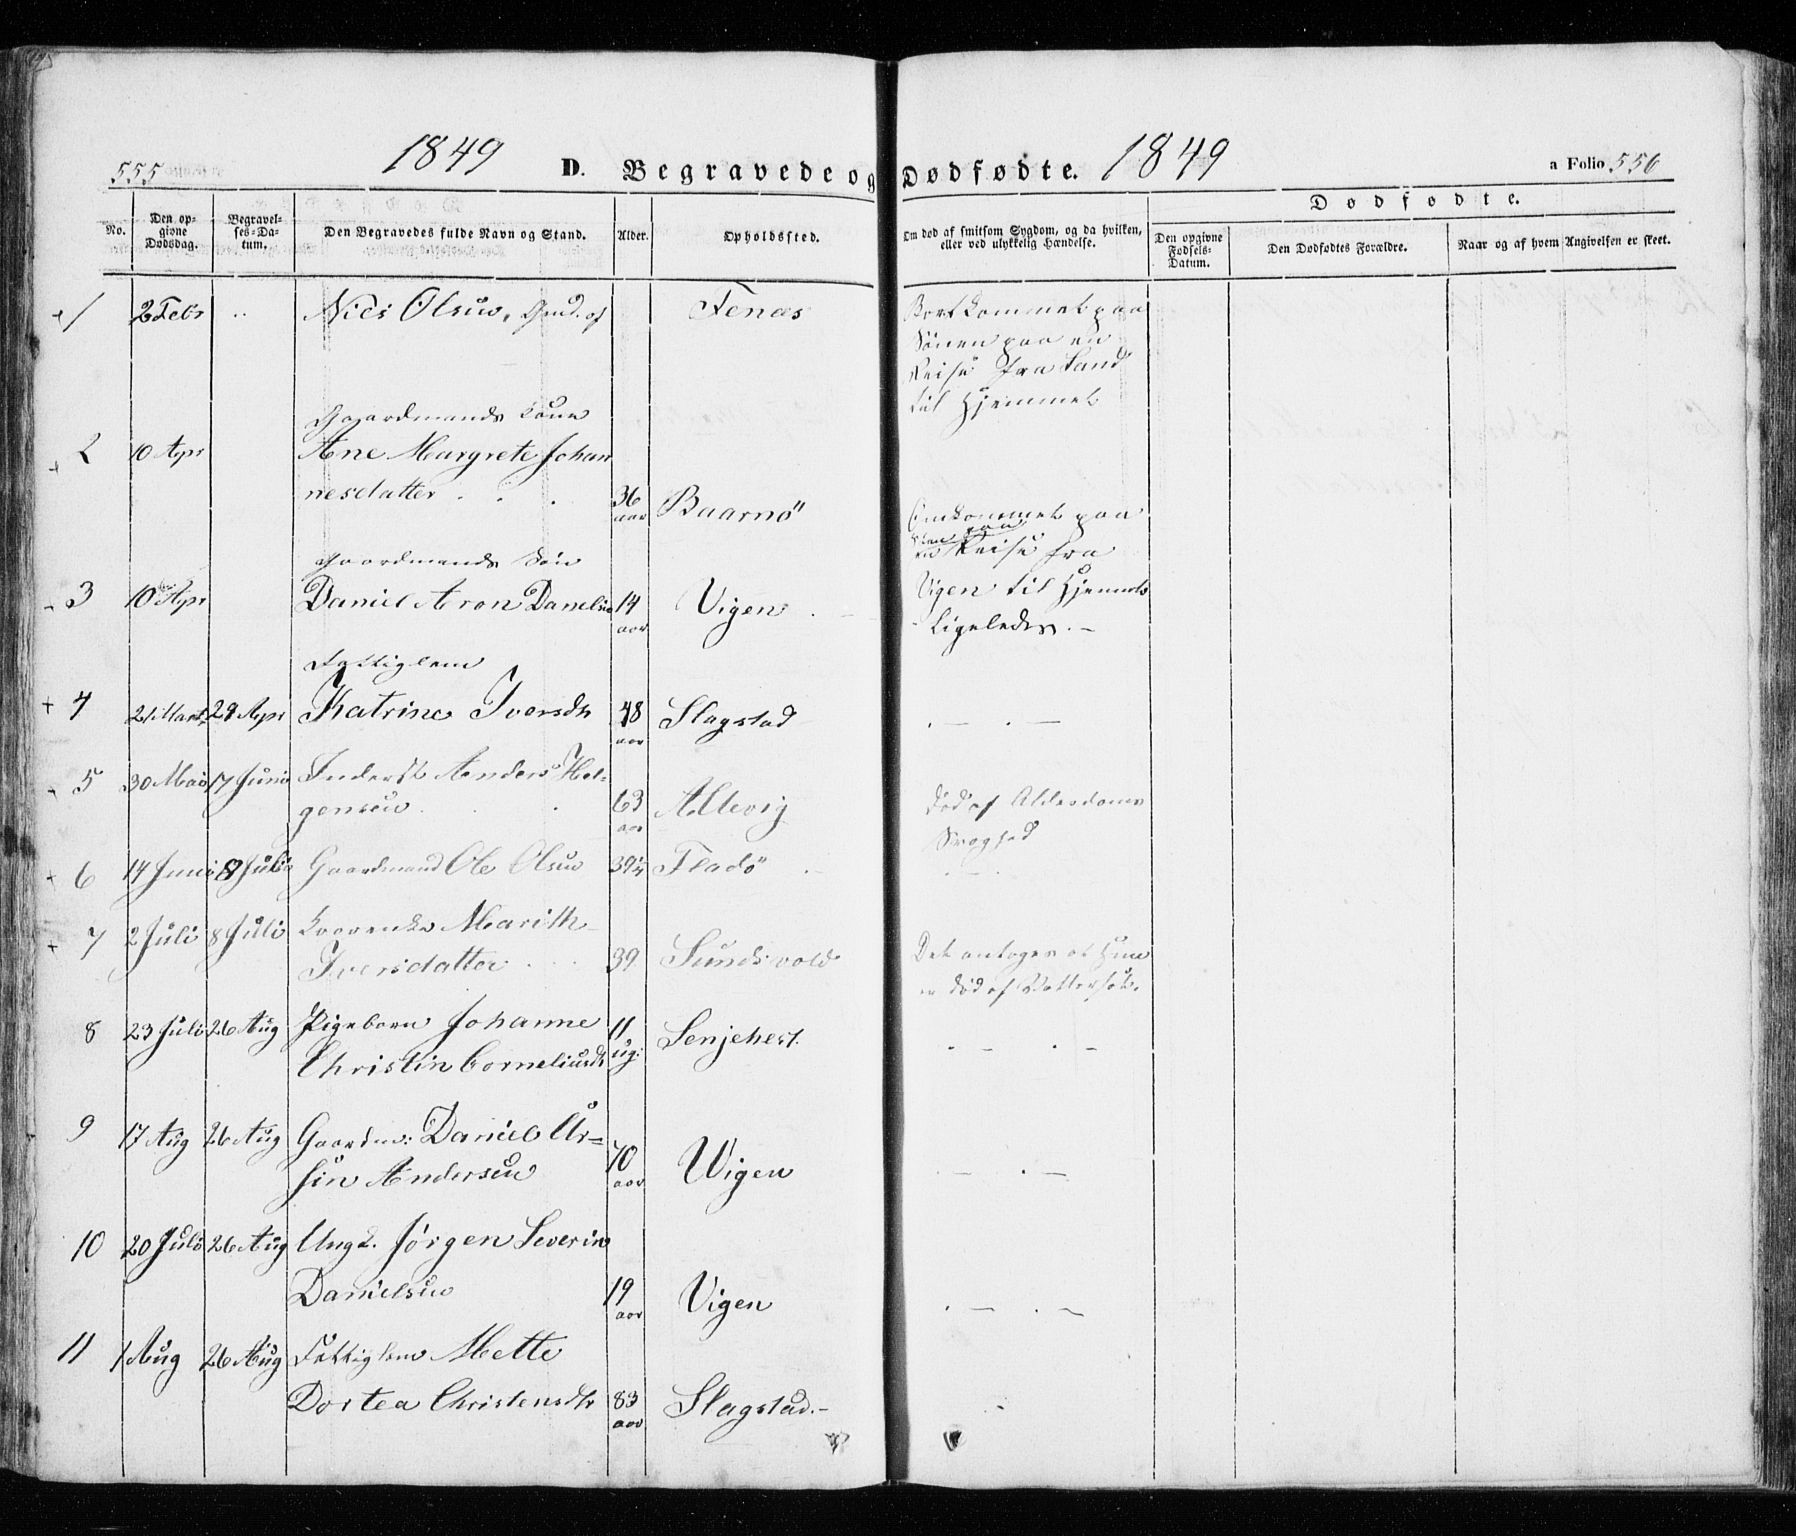 555 1849 D. Begravede og Dødfødte. 1849 a Folio 556
No. Den opgivne Dødsdag. Begravelses-Datum. Den Begravedes fulde Navn og Stand. Alder. Opholdssted. Om død af smitsom Sygdom, og da hvilken, eller ved ulykkelig Hændelse. Dødfødte.
Den opgivne Fødsels-Datum. Den Dødfødtes Forældre. Naar og af hvem Angivelsen er skeet.
1 2 Febr Niels Olsen, Gmd. af Tenæs Bortkommet paa
Søen paa en
Reise fra Land
til Hjemmet
Gaardmands Kone
2 10 Apr Ane Margrete Johan
nesdatter 36 aar Baarnö Omkommet paa
Søen paa
en Reise fra
Vigen til Hjemmet
Gaardmands Søn
3 10 Apr Daniel Aron Danielsen 14 aar Vigen Ligeledes. -
Fattiglem
4 21 Marts 29 Apr Katrine Iversdtr 48 aar Slagstad - . -
5 30 Mai 17 Juni Inderst Anders Hel-
gensen 63 aar Altevig Død af Alderdoms
Svaghed
6 14 Juni 8 Juli Gaardmand Ole Olsen 39 ¼ Fladö
7 2 Juli 8 Juli Marith
Iversdatter 39 Sundsvold Det antages at Hun
er død af Vattersot.
8 23 Juli 26 Aug Pigebarn Johanne
Christin Corneliusdtr 11 ug: Senjehest. . - . -
9 17 Aug 26 Aug Gaardm: Daniel Ur-
sin Andersen 70 aar Wigen - . -
10 20 Juli 26 Aug Ungk. Jørgen Severin
Danielsen 19 aar Vigen . - . -
11 1 Aug 26 Aug Fattiglem Mette
Dortea Christensdtr 83 aar Slagstad. -